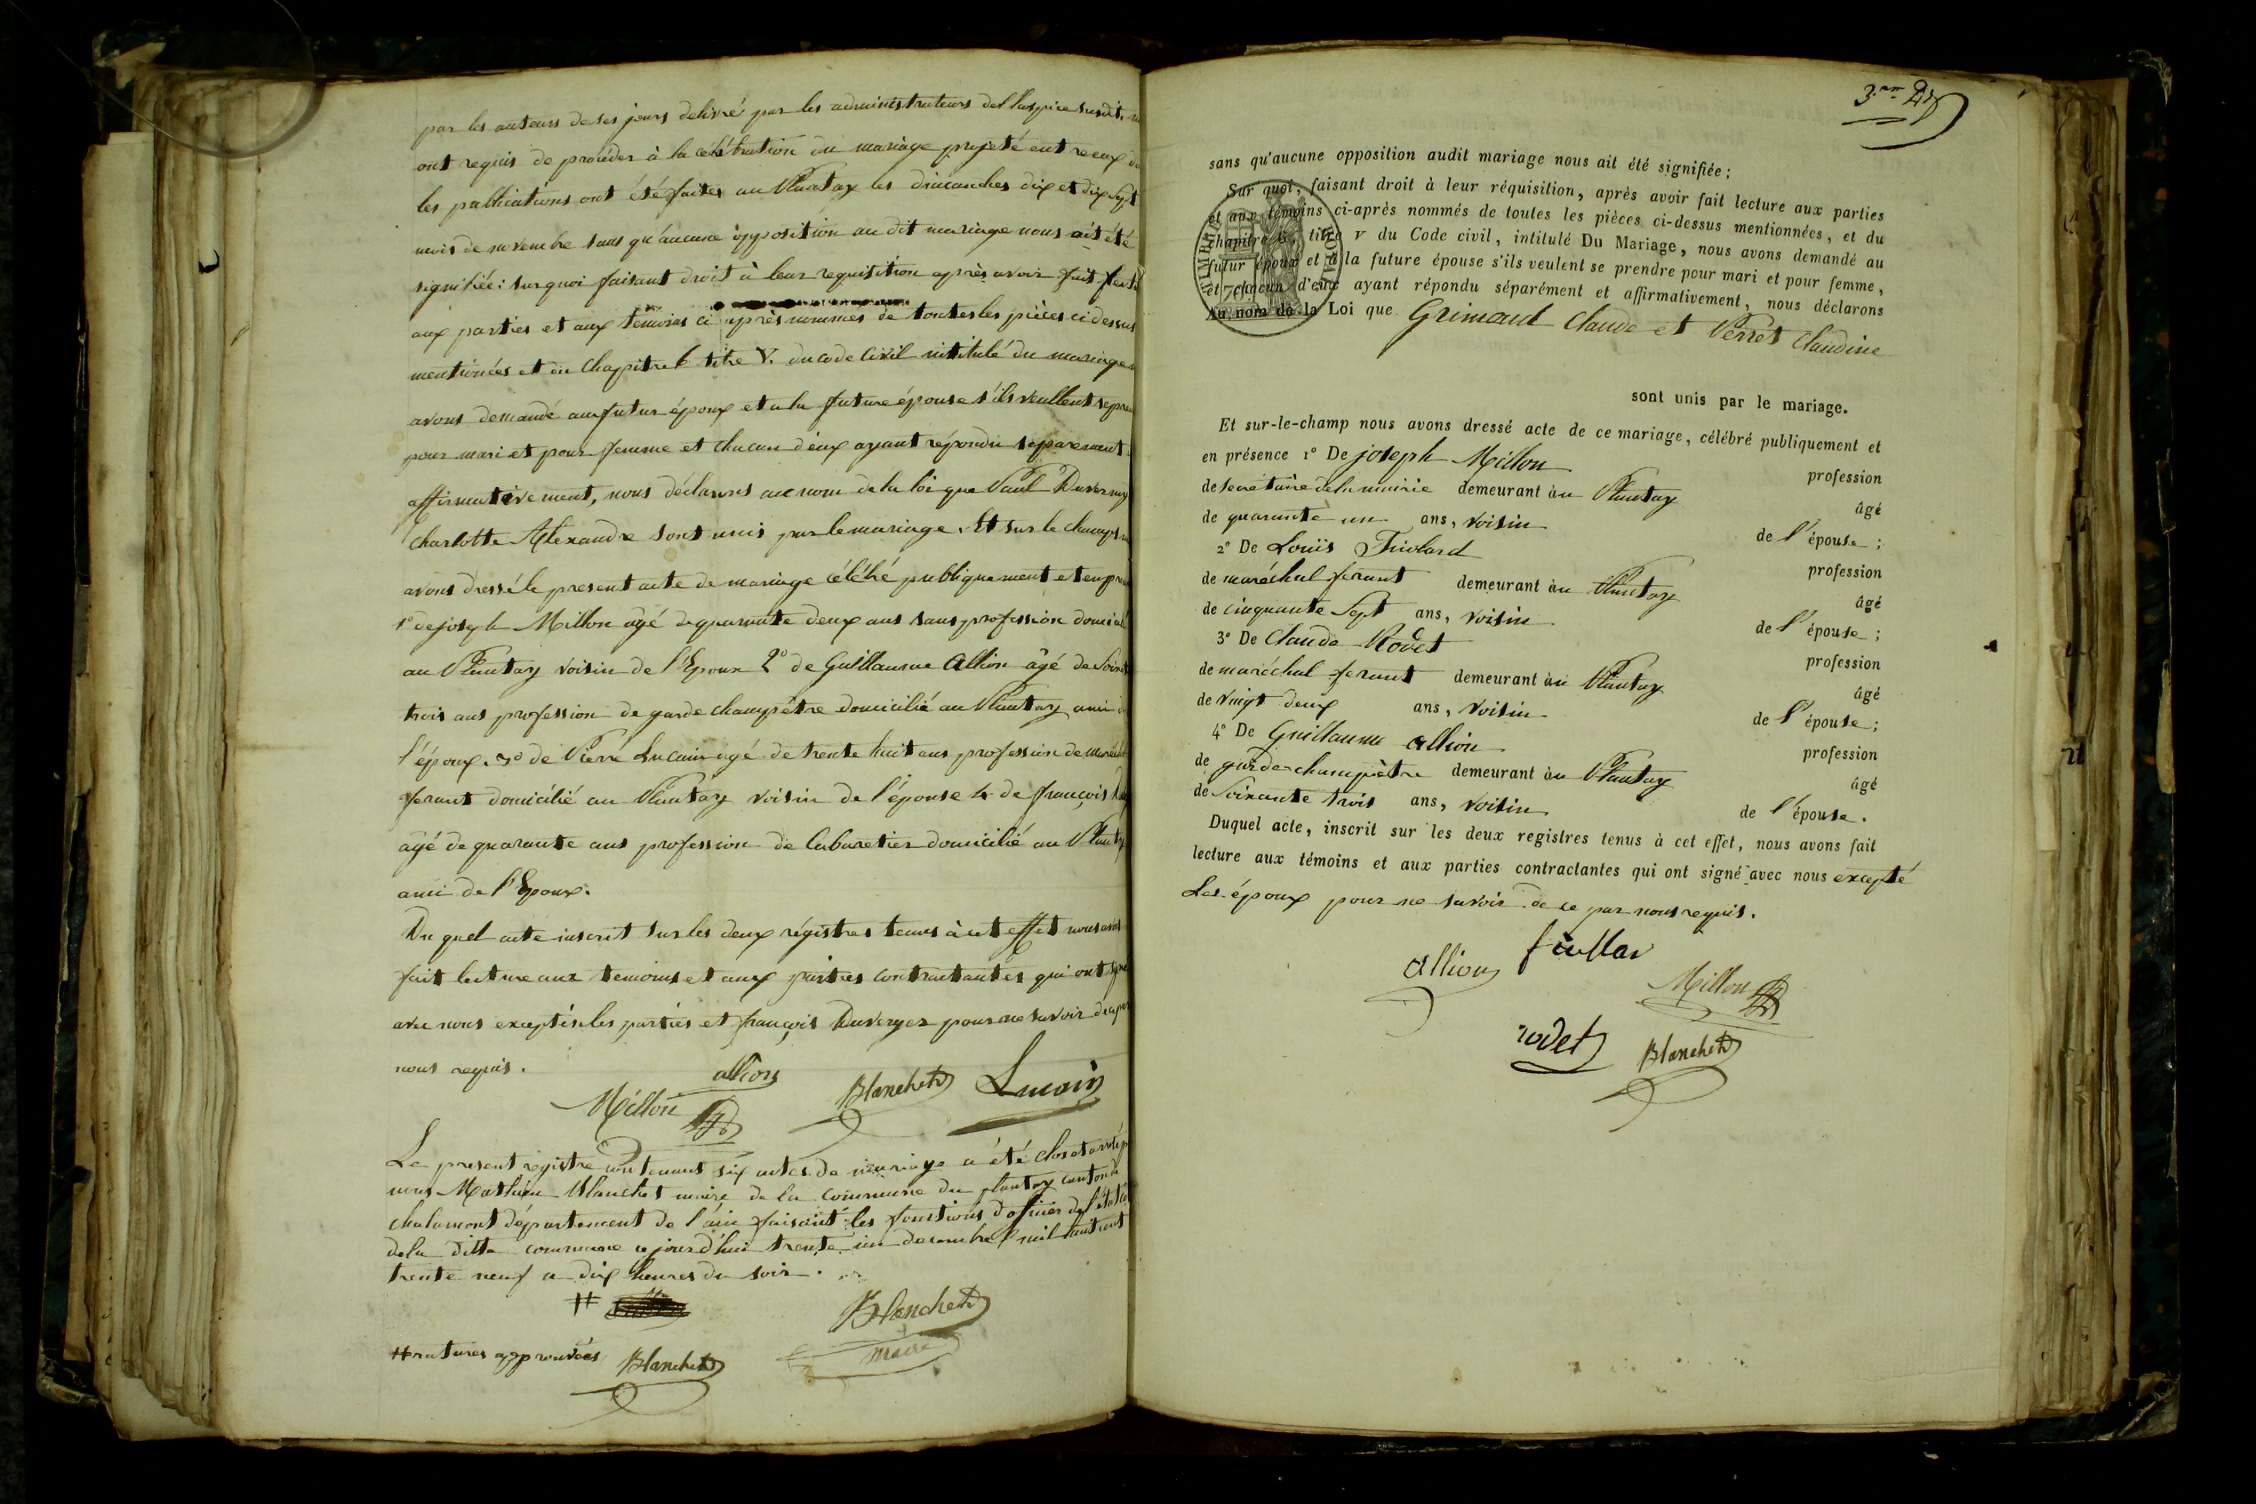 par les auteurs de ses jours delivré par les administrateurs del'hospice susdit,
ont requis de procéder à la célébration du mariage projeté entre eux
les publications ont été faites au Plantay les dimanches dix et dix sept
mois de novembre sans qu'aucune opposition au dit mariage nous ait été
signifiée: sur quoi faisant droit à leur requisition après avoir fait
aux parties et aux témoins ci après nommés de toutes les pièces ci dessus
mentionées et du Chapitre 6 titre V. du code Civil intitulé du mariage
avons demandé au futur époux et a la future épouse s'ils veullent se
pour mari et pour femme et chacun d'eux ayant répondu séparement
affirmativement, nous déclarons au nom de la loi que Paul Duverney
Charlotte Alexandre sont unis par le mariage. Et sur le champ
avons dressé le present acte de mariage célébré publiquement et en
1° de joseph Millon âgé de quarante deux ans sans profession
au Plantay voisin de l'Epoux 2° de Guillaume Allion âgé de
trois ans profession de garde champêtre domicilié au Plantay ami
l'époux. 3° de Pierre Lucain agé de trente huit ans profession de
ferant domicilié au Plantay voisin de l'épouse 4 de françois
âgé de quarante ans profession de Cabaretier domicilié au
ami de l'Epoux.
Du quel acte inscrit sur les deux régistres tenus à cet effet nous
fait lecture aux temoins et aux parties contractantes qui ont
avec nous exceptés les parties et françois Duverger pour ne savoir
nous requis.
allion
Millon Blanchet Lucain
Le present registre contenant six actes de mariage a été clos et
nous Mathieu Blanchet maire de la commune du plantay canton de
chalamont département de l'ain faisant les fonctions d'officier de
de la ditte commune cejourd'hui trente un decembre mil huit cent
trente neuf a dix heures du soir.
Blanchet
maire
ratures approuvées Blanchet
sans qu'aucune opposition audit mariage nous ait été signifiée;
Sur quoi, faisant droit à leur réquisition, après avoir fait lecture aux parties
et aux témoins ci-après nommés de toutes les pièces ci-dessus mentionnées, et du
chapitre 6, titre V du Code civil, intitulé Du Mariage, nous avons demandé au
futur époux et à la future épouse s'ils veulent se prendre pour mari et pour femme,
et chacun d'eux ayant répondu séparément et affirmativement, nous déclarons
Au nom de la Loi que Grimaud Claude et Perret Claudine
sont unis par le mariage.
Et sur-le-champ nous avons dressé acte de ce mariage, célébré publiquement et
en présence 1° De joseph Millon profession
de secrétaire de la mairie demeurant au Plantay âgé
de quarante un ans, voisin de l'épouse;
2° De Louis profession
de maréchal ferant demeurant au Plantay âgé
de cinquante sept ans, voisin de l'épouse;
3° De Claude Rodet profession
de maréchal ferant demeurant au Plantay âgé
de vingt deux ans, voisin de l'épouse;
4° De Guillaume allion profession
de garde-champêtre demeurant au Plantay âgé
de soixante trois ans, voisin de l'épouse.
Duquel acte, inscrit sur les deux registres tenus à cet effet, nous avons fait
lecture aux témoins et aux parties contractantes qui ont signé avec nous excepté
Les époux pour ne savoir de ce par nous requis.
allion
Millon
rodet Blanchet